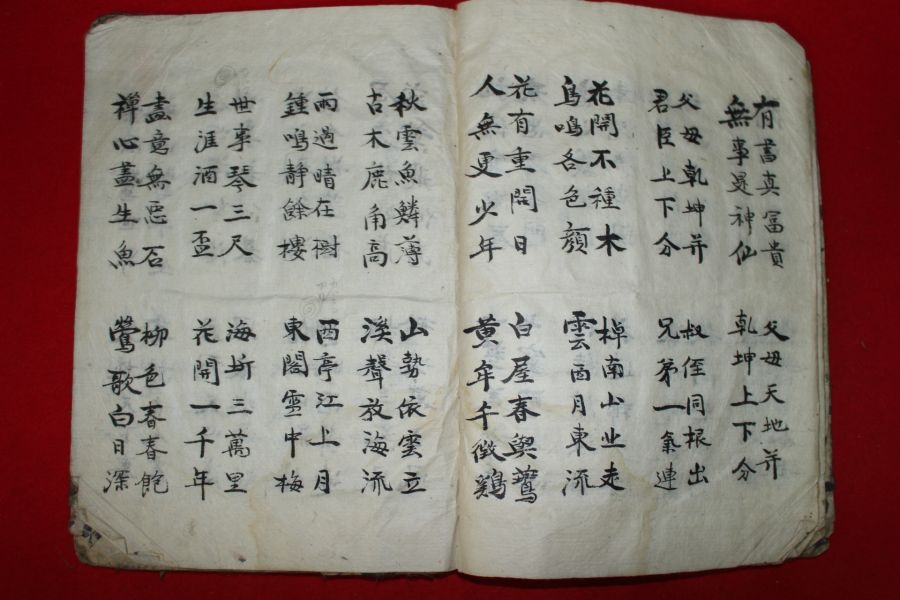 有書真冨貴
無事是神仙
父母乾坤并
君臣上下分
花開不種木
鳥鳴各色顔
花有重開日
人無更少年
父母天地并
乾坤上下分
叔侄同根出
兄弟一氣連
棹南山北走
雲西月東流
白屋春與
黃午鷄
秋雲魚鱗薄
古木鹿角高
雨過晴在樹
鍾鳴静餘樓
世事琴三尺
生涯酒一盃
盡竟無惡石
禪心盡生魚
山勢依雲立
溪聲放海流
西亭江上月
東閣雪中梅
海圻三萬里
花開一千年
柳色春春飽
鶯歌白日深